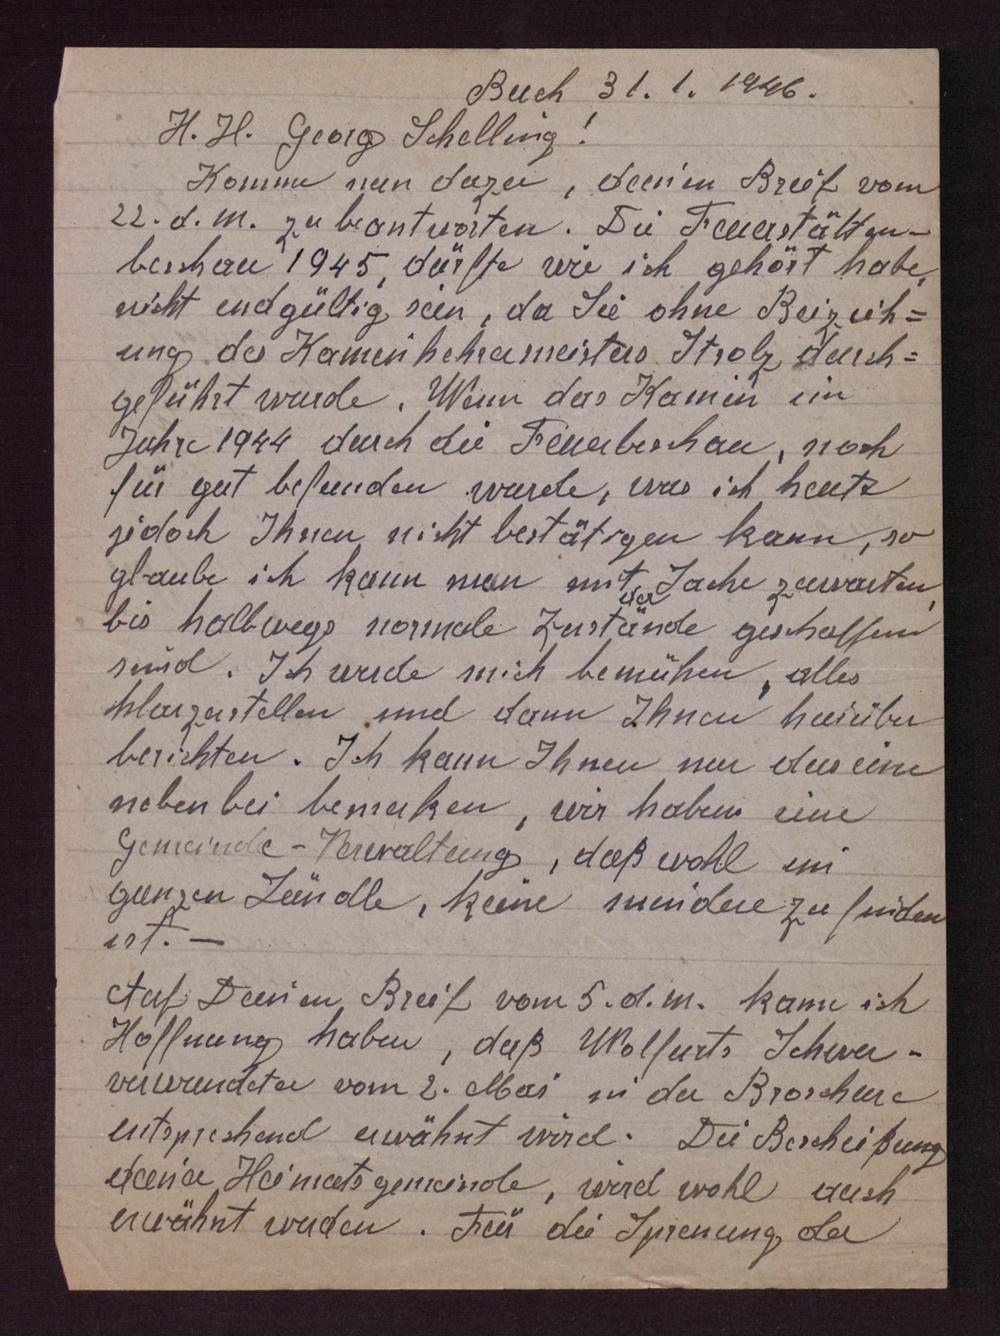 Buch 31. 1. 1946.
H. H. Georg Schelling!
Komme nun dazu, deinen Brief vom
22. d. M. zu beantworten. Die Feuerstätten-
beschau 1945, dürfte wie ich gehört habe,
nicht endgültig sein, da Sie ohne Beizieh=
ung des Kaminkehrermeisters Strolz durch=
geführt wurde. Wenn das Kamin im
Jahre 1944 durch die Feuerbeschau, noch
für gut befunden wurde, was ich heute
jedoch Ihnen nicht bestätigen kann, so
glaube ich kann man mit der Sache zuwarten,
bis halbwegs normale Zustände geschaffen
sind. Ich werde mich bemühen, alles
klarzustellen und dann Ihnen hierüber
berichten. Ich kann Ihnen nur das eine
nebenbei bemerken, wir haben eine
Gemeinde-Verwaltung, daß wohl im
ganzen Ländle, keine mindere zu finden
ist. —
Auf Deinen Brief vom 5. d. M. kann ich
Hoffnung haben, daß Wolfurts Schwer-
verwundeter vom 2. Mai in der Broschure
entsprechend erwähnt wird. Die Beschießung
deiner Heimatsgemeinde, wird wohl auch
erwähnt werden. Für die Sprenung der